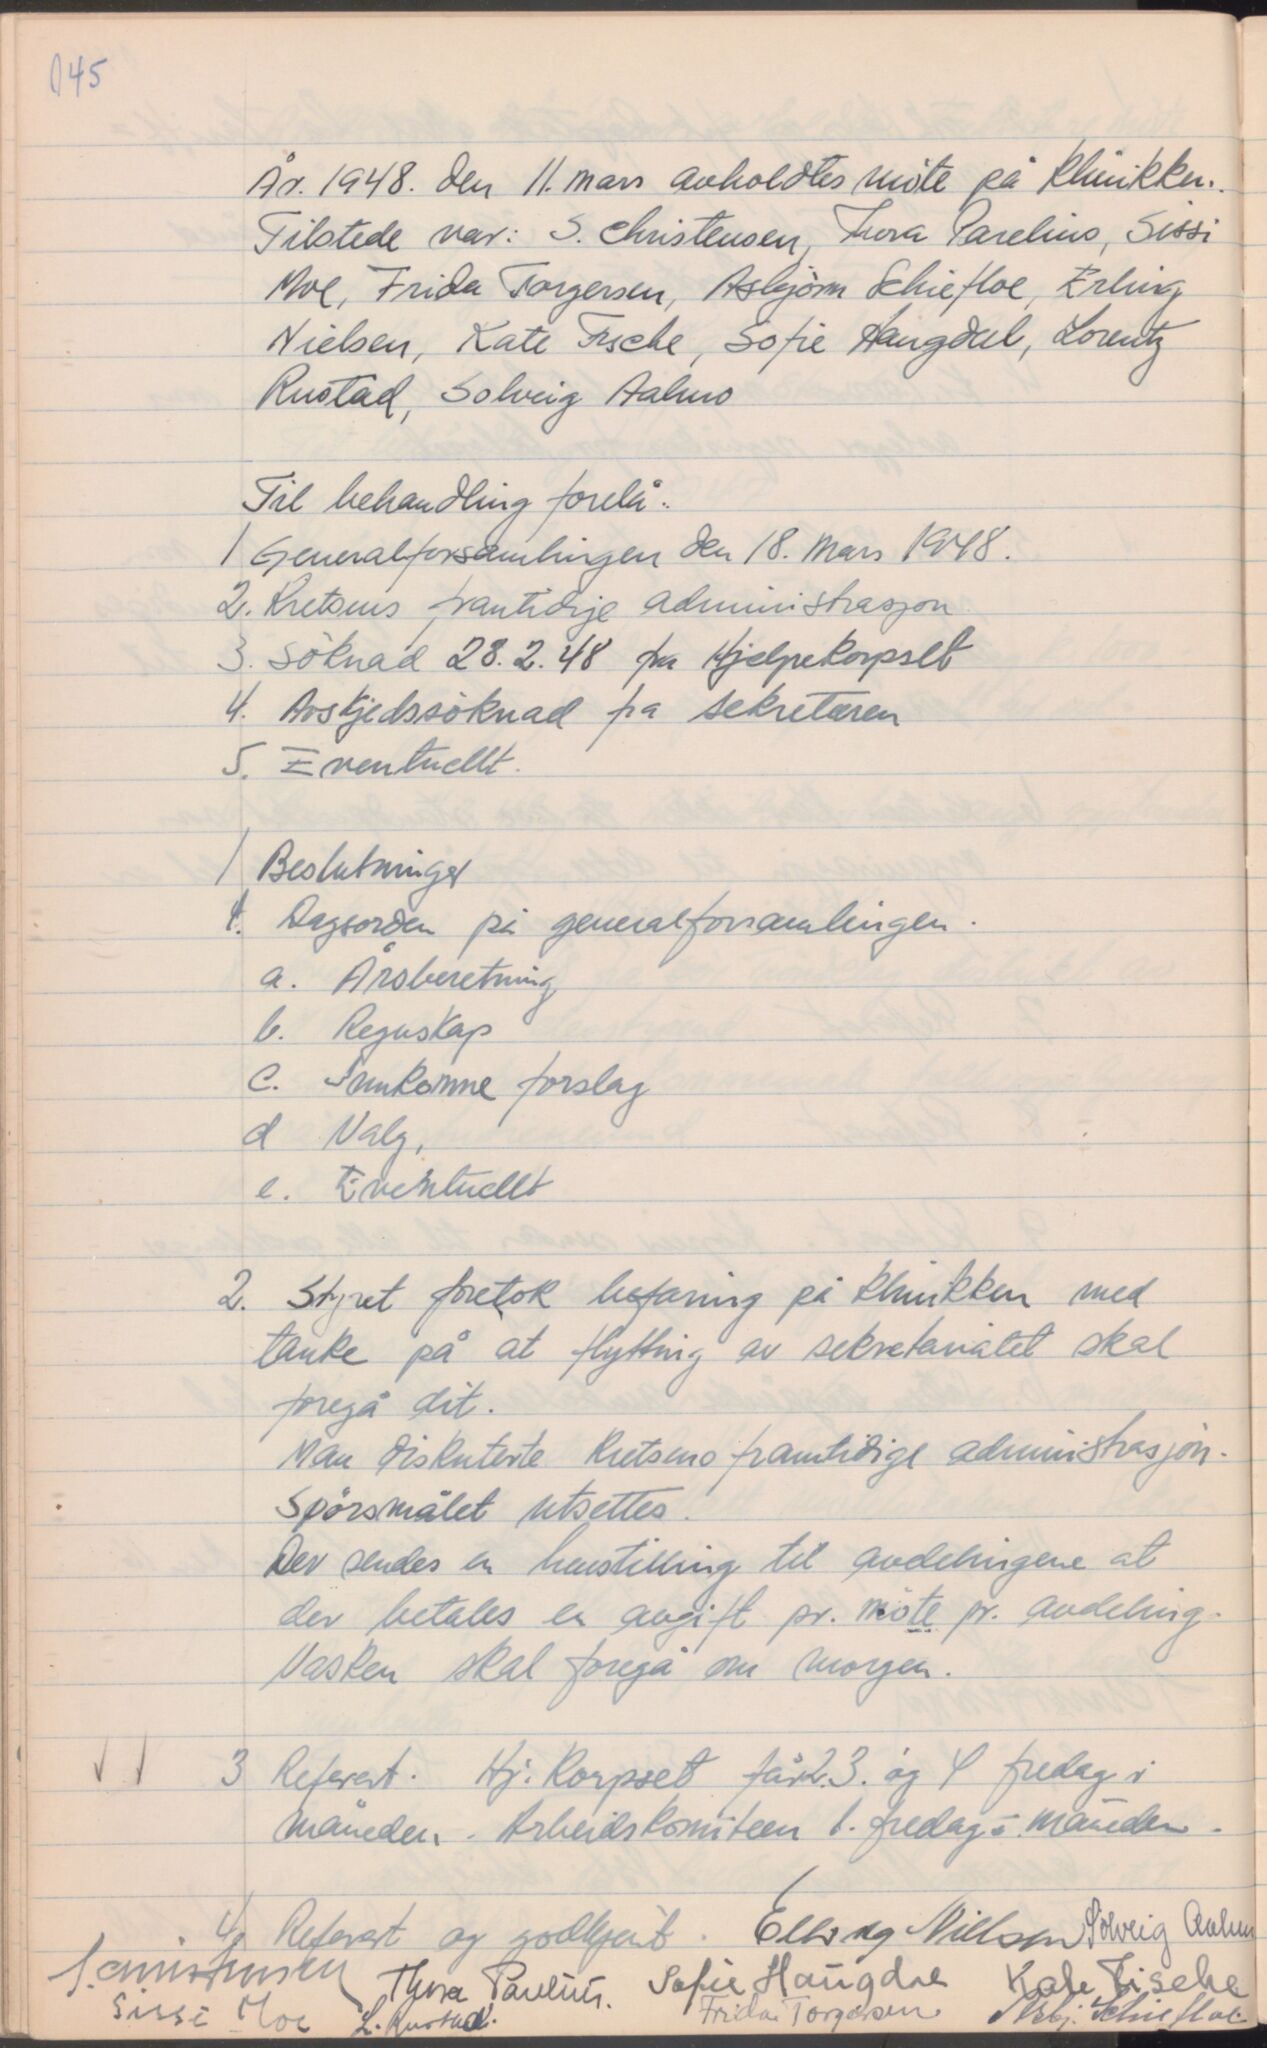 145
År. 1948. den 11. mars avholdtes möte på Klinikken.
Tilstede var: S. Christensen, Thora Parelius, Sissi
Moe, Frida Torgersen, Asbjörn Schiefloe, Erling
Nielsen, Kate Fische, Sofie Haugdal, Lorentz
Rustad, Solveig Aalmo
Til behandling forelå:
1 Generalforsamlingen den 18. mars 1948.
2. Kretsens framtidige administrasjon
3. Söknad 28.2.48 fra Hjelpekorpset
4. Avskjedssöknad fra sekretæren
5. Eventuellt.
1 Beslutninger
1. Dagsorden på generalforsamlingen.
a. Årsberetning
b. Regnskap
c. Innkomne forslag
d Valg,
e. Eventuellt
2. Styret foretok befaring på klinikken med
tanke på at flytting av sekretariatet skal
foregå dit.
Man diskuterte Kretsens framtidige administrasjon.
Spörsmålet utsettes.
Der sendes en henstilling til avdelingene at
der betales en avgift pr. möte pr. avdeling.
Vasken skal foregå om morgen.
3 Referert. Hj. Korpset får 2. 3. og 4 fredag i
måneden. Arbeidskomiteen 1. fredag i måneden.
4. Referert og godkjent. Erling Nielsen Solveig Aalmo
S. Christensen Thora Parelius. Sofie Haugdal Kate Fische
Sissi Moe L. Rustad. Frida Torgersen Asbj. Schiefloe